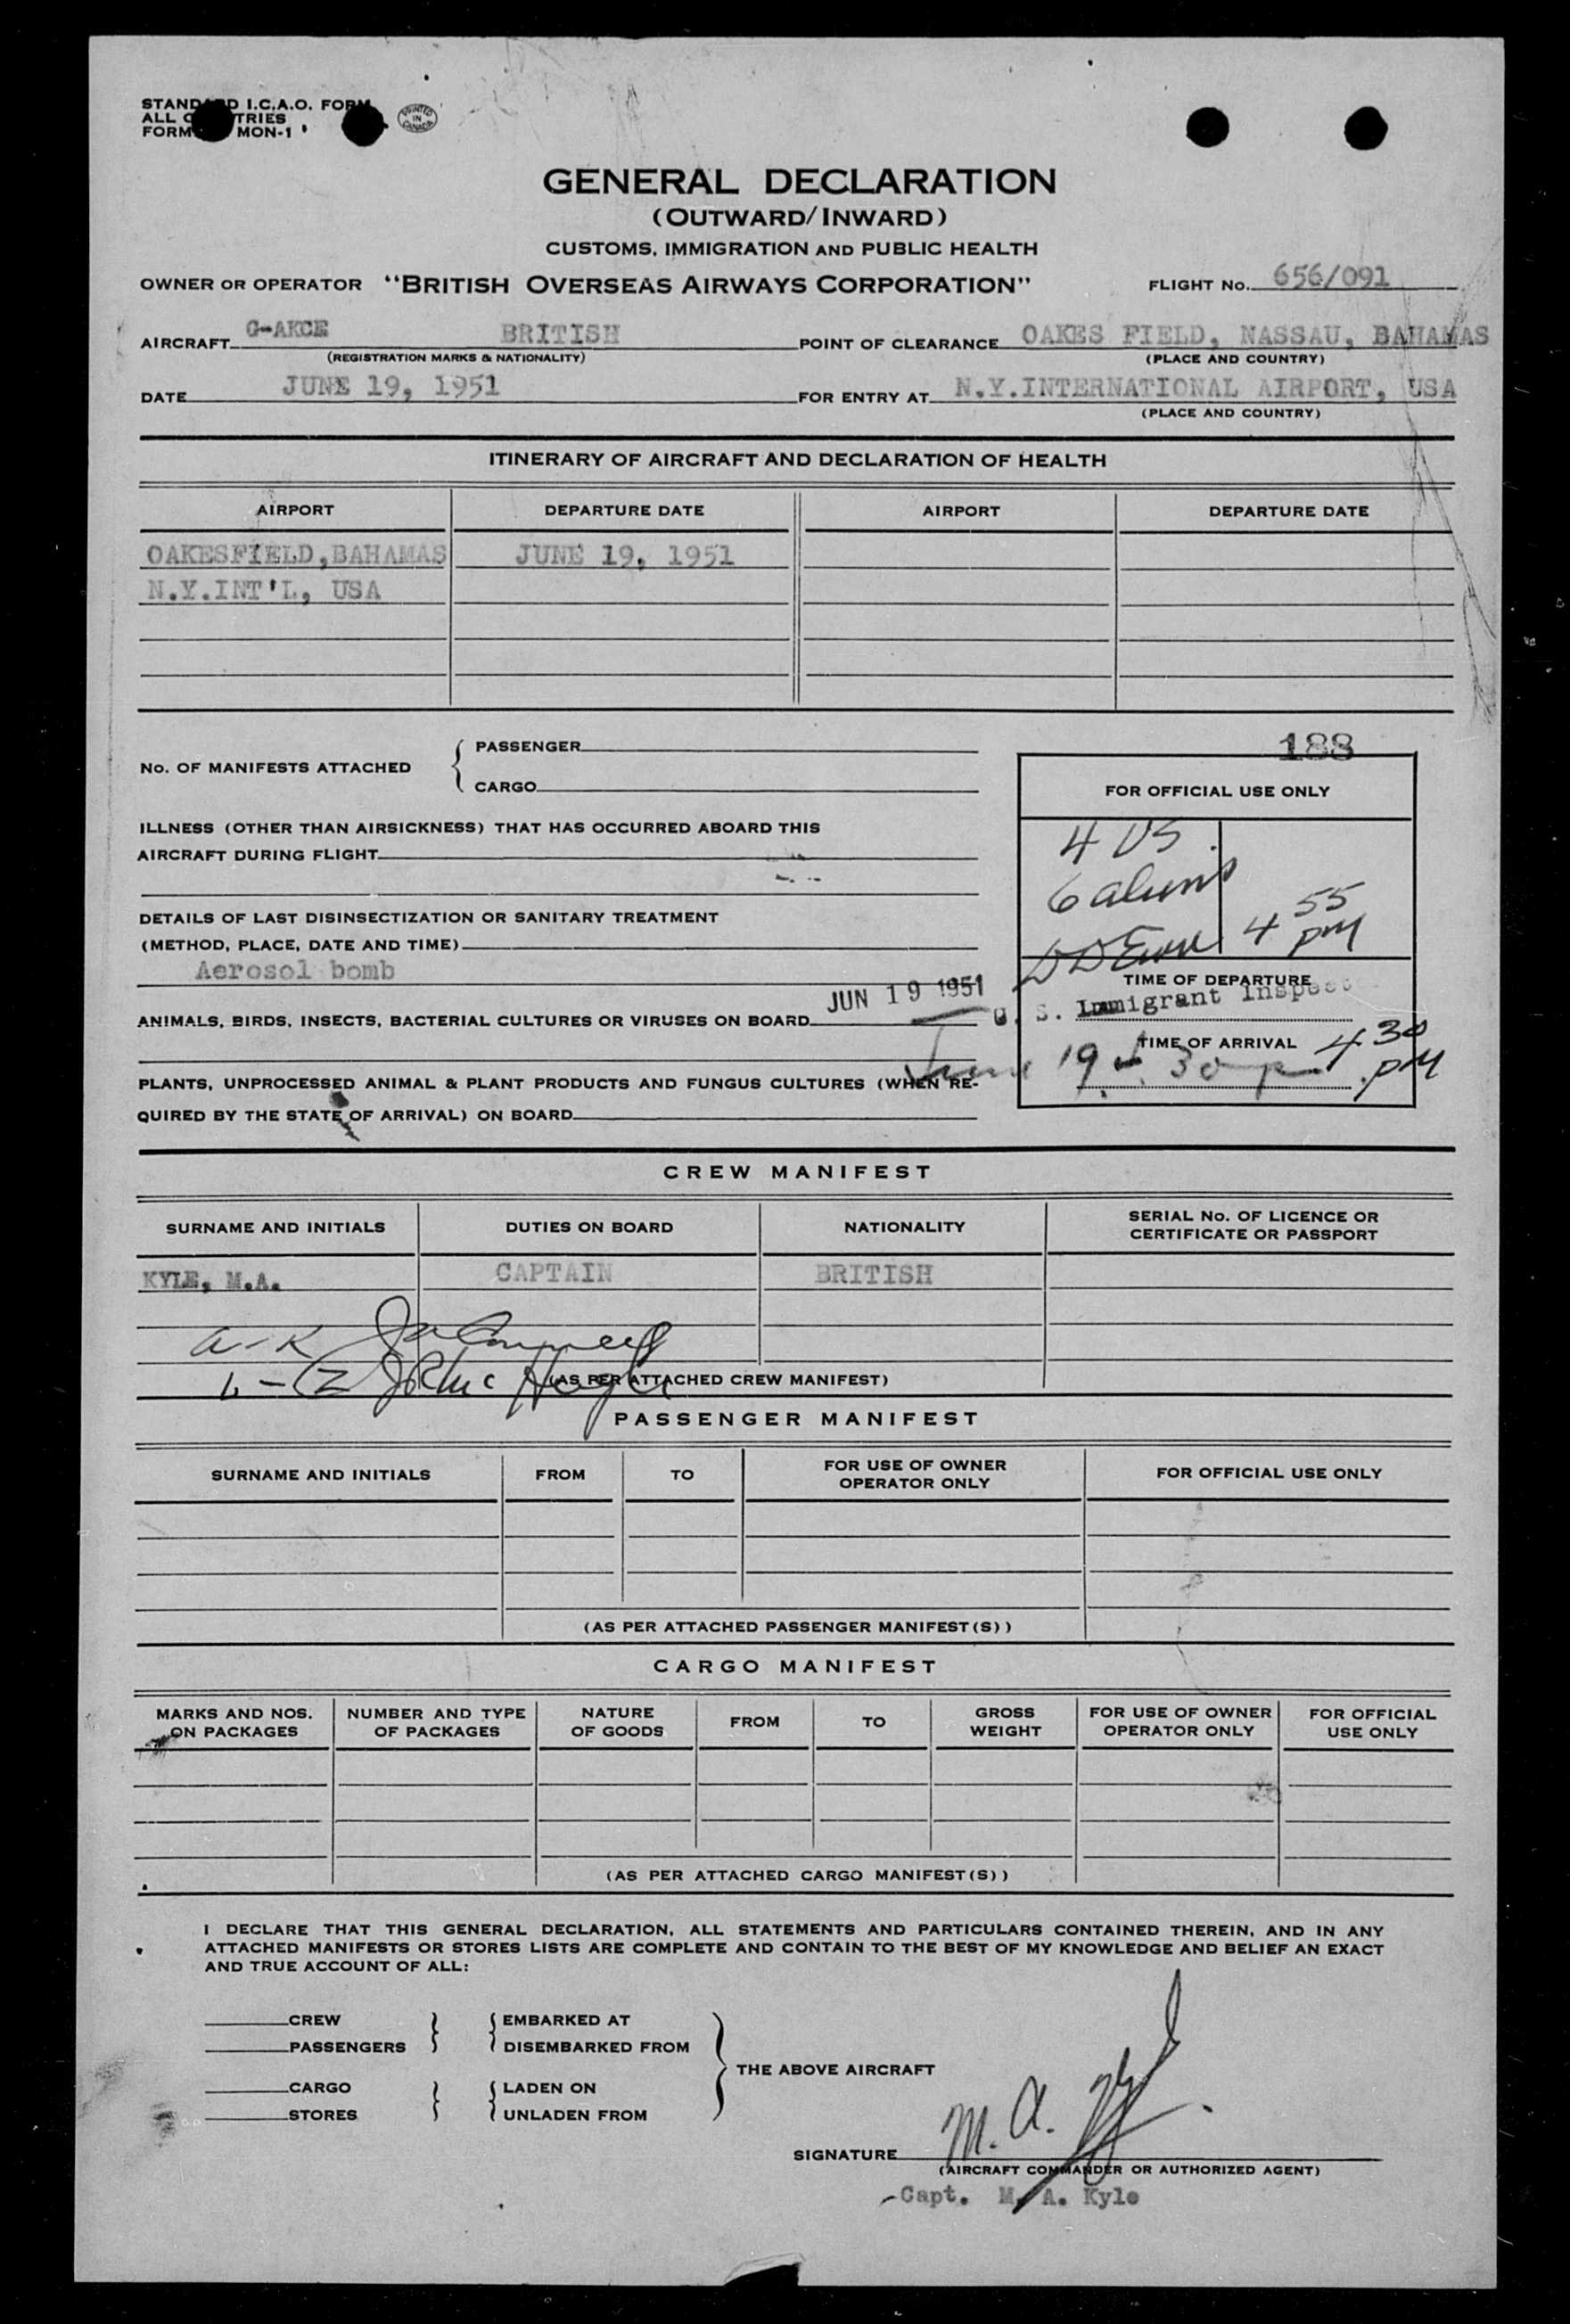 STANDARD I.C.A.O. FORM
ALL COUNTRIES
FORM MON-1
PRINTED IN CANADA
GENERAL DECLARATION
(OUTWARD/INWARD)
CUSTOMS, IMMIGRATION AND PUBLIC HEALTH
OWNER OR OPERATOR "BRITISH OVERSEAS AIRWAYS CORPORATION" FLIGHT No. 656/091
AIRCRAFT G-AKCE BRITISH POINT OF CLEARANCE OAKES FIELD, NASSAU, BAHAMAS
(REGISTRATION MARKS & NATIONALITY) (PLACE AND COUNTRY)
DATE JUNE 19, 1951 FOR ENTRY AT N.Y.INTERNATIONAL AIRPORT, USA
(PLACE AND COUNTRY)
ITINERARY OF AIRCRAFT AND DECLARATION OF HEALTH
AIRPORT DEPARTURE DATE AIRPORT DEPARTURE DATE
OAKESFIELD,BAHAMAS JUNE 19, 1951
N.Y.INT'L, USA
188
No. OF MANIFESTS ATTACHED { PASSENGER
CARGO
FOR OFFICIAL USE ONLY
ILLNESS (OTHER THAN AIRSICKNESS) THAT HAS OCCURRED ABOARD THIS
AIRCRAFT DURING FLIGHT
4 US
6 aliens
4 55 PM
DETAILS OF LAST DISINSECTIZATION OR SANITARY TREATMENT
(METHOD, PLACE, DATE AND TIME)
Aerosol bomb
TIME OF DEPARTURE
JUN 19 1951
U. S. Immigrant Inspector
ANIMALS, BIRDS, INSECTS, BACTERIAL CULTURES OR VIRUSES ON BOARD
TIME OF ARRIVAL 4 30 PM
June 19 4.30 p
PLANTS, UNPROCESSED ANIMAL & PLANT PRODUCTS AND FUNGUS CULTURES (WHEN RE-
QUIRED BY THE STATE OF ARRIVAL) ON BOARD
CREW MANIFEST
SURNAME AND INITIALS DUTIES ON BOARD NATIONALITY SERIAL No. OF LICENCE OR
CERTIFICATE OR PASSPORT
KYLE, M.A. CAPTAIN BRITISH
A-K
L-Z
(AS PER ATTACHED CREW MANIFEST)
PASSENGER MANIFEST
SURNAME AND INITIALS FROM TO FOR USE OF OWNER
OPERATOR ONLY FOR OFFICIAL USE ONLY
(AS PER ATTACHED PASSENGER MANIFEST(S))
CARGO MANIFEST
MARKS AND NOS. NUMBER AND TYPE NATURE FROM TO GROSS FOR USE OF OWNER FOR OFFICIAL
ON PACKAGES OF PACKAGES OF GOODS WEIGHT OPERATOR ONLY USE ONLY
(AS PER ATTACHED CARGO MANIFEST(S))
I DECLARE THAT THIS GENERAL DECLARATION, ALL STATEMENTS AND PARTICULARS CONTAINED THEREIN, AND IN ANY
ATTACHED MANIFESTS OR STORES LISTS ARE COMPLETE AND CONTAIN TO THE BEST OF MY KNOWLEDGE AND BELIEF AN EXACT
AND TRUE ACCOUNT OF ALL:
CREW EMBARKED AT
PASSENGERS DISEMBARKED FROM
THE ABOVE AIRCRAFT
CARGO LADEN ON
STORES UNLADEN FROM
SIGNATURE M. A. Kyle
(AIRCRAFT COMMANDER OR AUTHORIZED AGENT)
Capt. M. A. Kyle